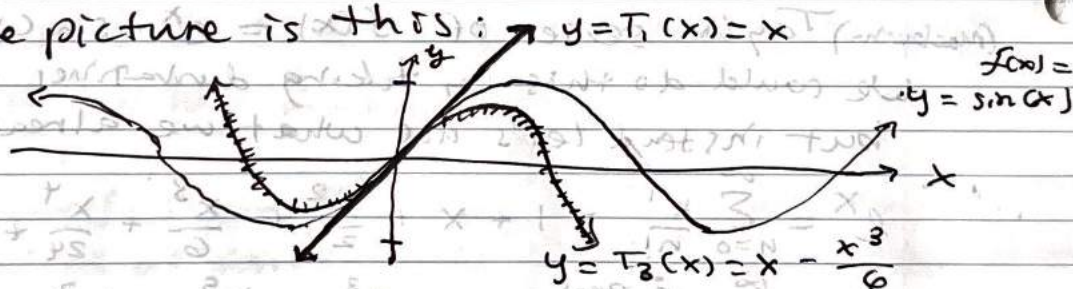 e picture is this: y = T₁(x) = x
y
f(x) =
y = sin(x)
x
y = T₃(x) = x - x³/6